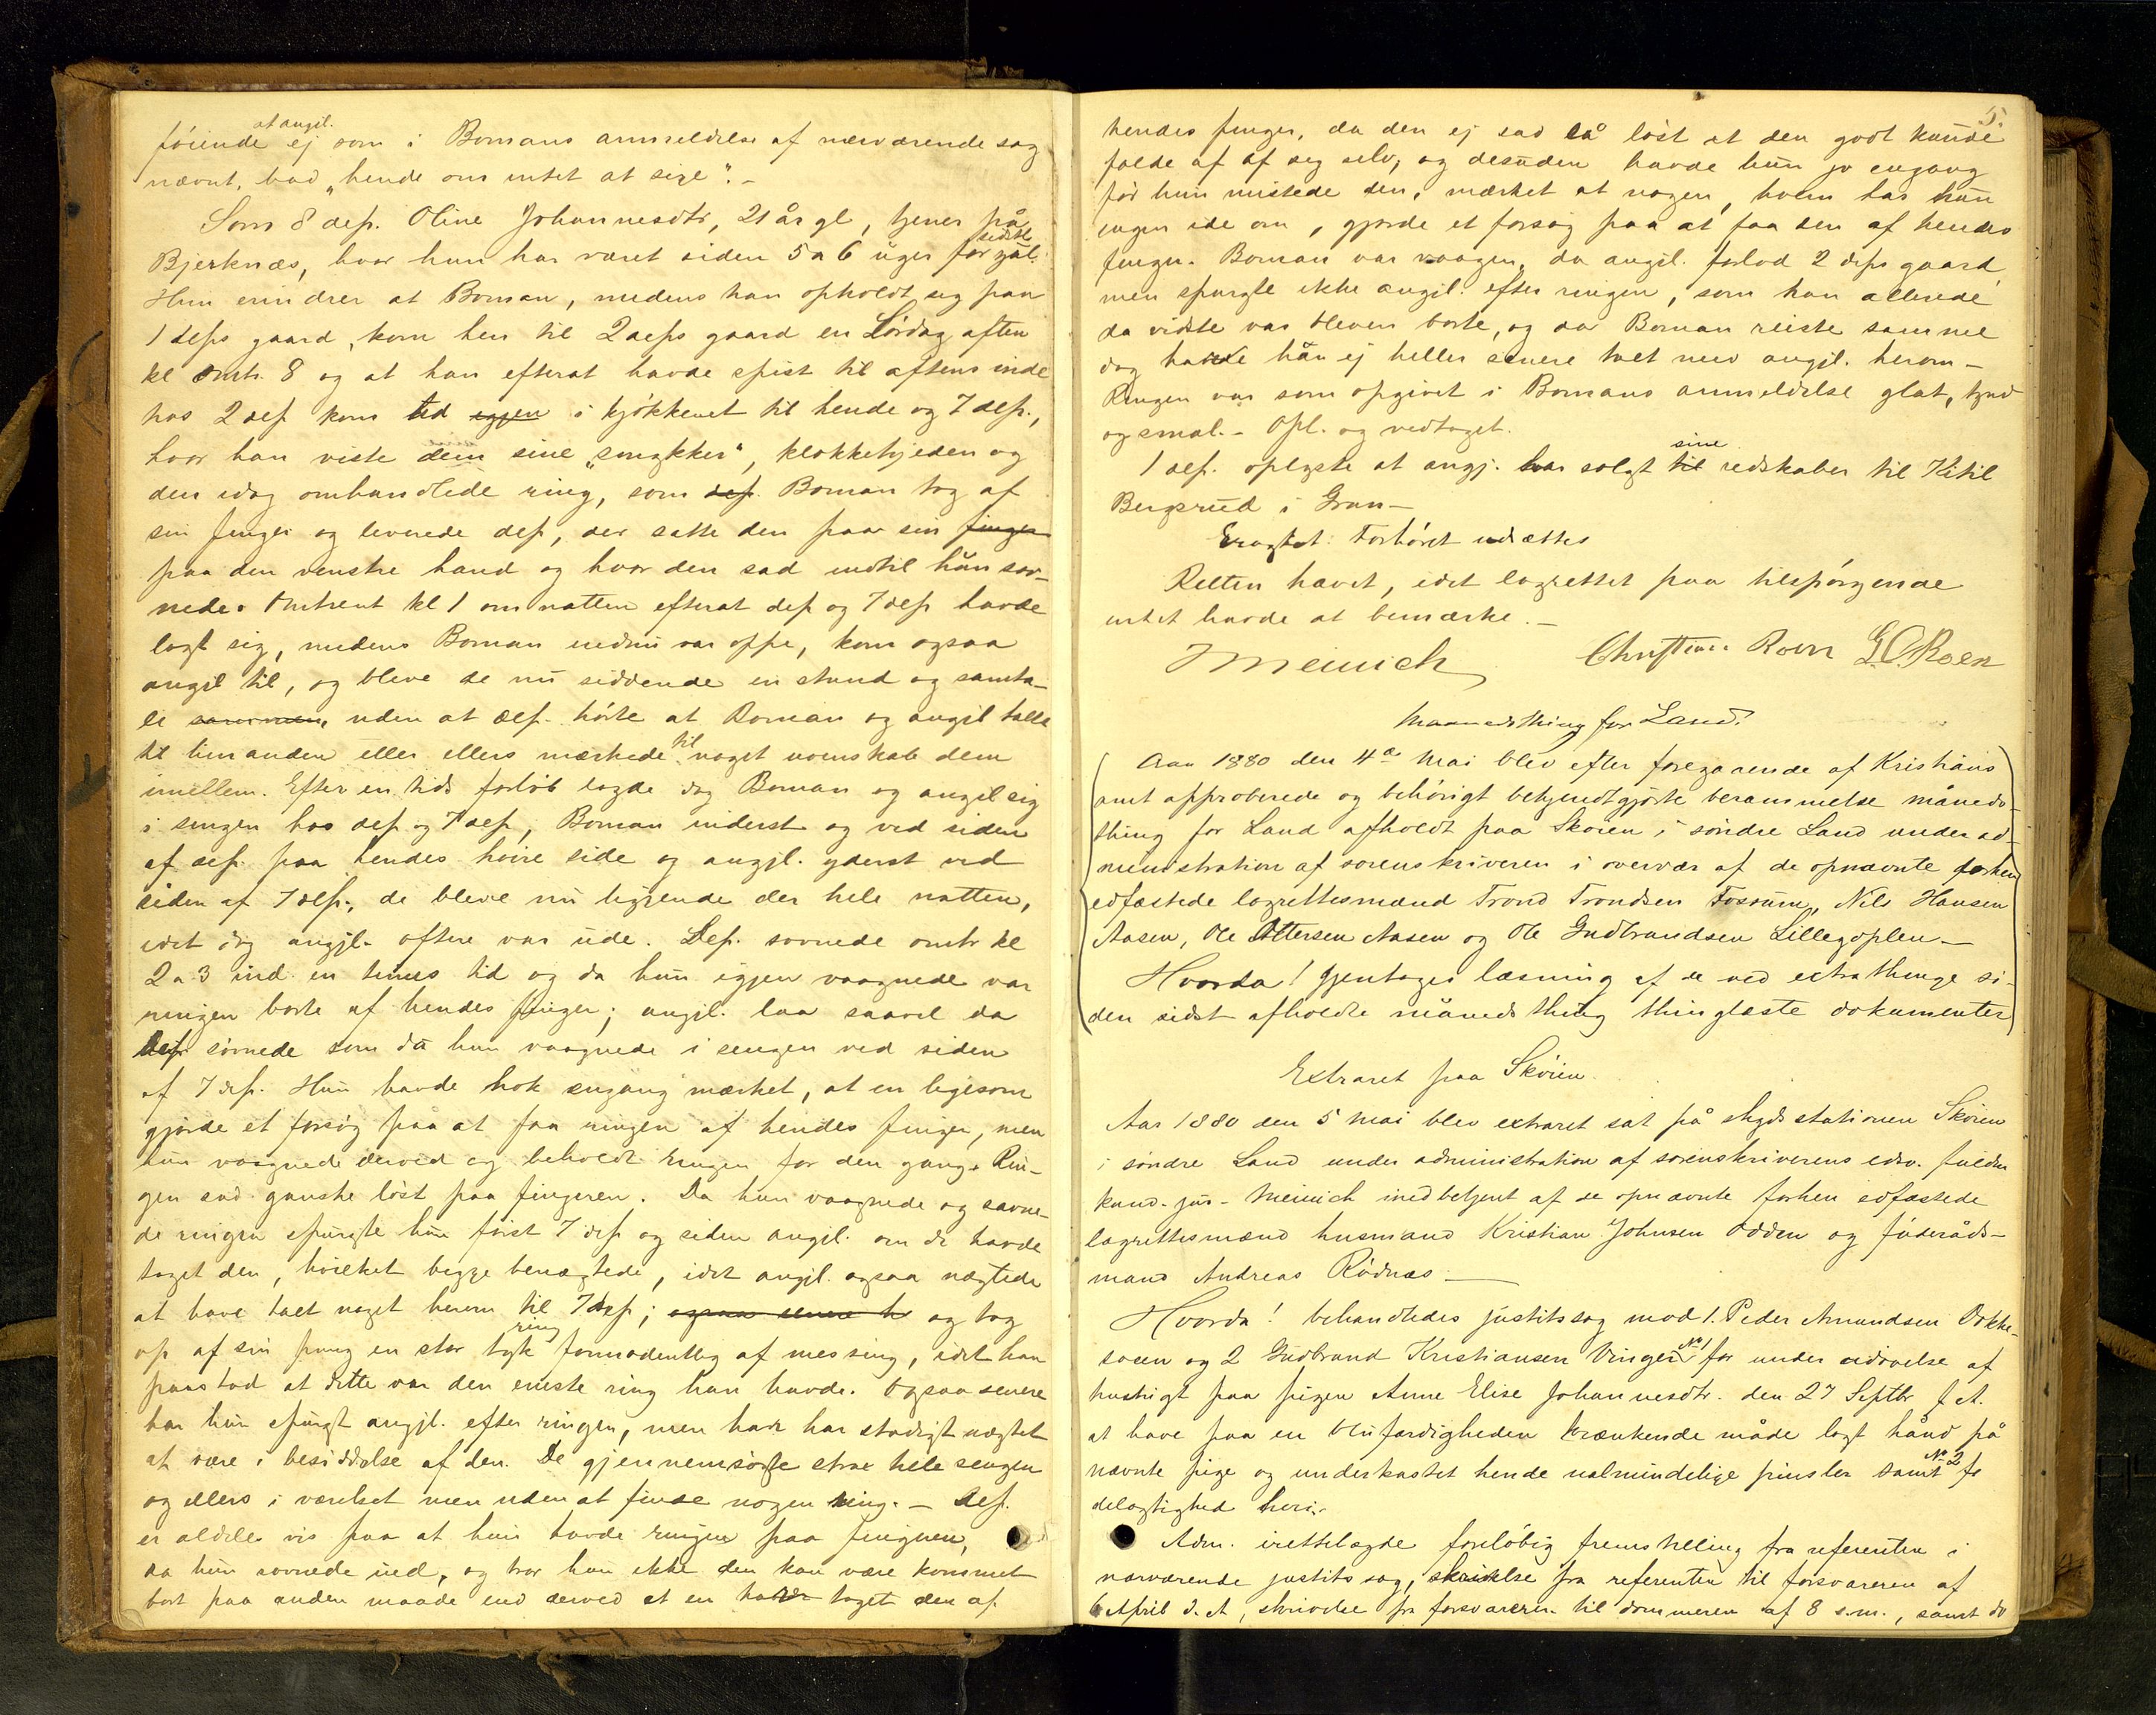 føiende at angjl. ej som i Bomans anmeldelse af nærværende sag
nævnt, bad "hende om intet at sige". -
Som 8 dep. Oline Johannesdtr, 21 år gl, tjener på
Bjerknæs, hvor hun har været siden 5 a 6 uger før sidste jul.
Hun erindrer at Boman, medens han opholdt sig paa
1 deps gaard, kom hen til 2 deps gaard en Lørdag aften
kl omtr. 8 og at han efterat havde spist til aftens inde
hos 2 dep kom ud igjen i kjøkkenet til hende og 7 dep.,
hvor han viste dem sine "smykker", klokkekjeden og
den idag omhandlede ring, som dep. Boman tog af
sin finger og leverede dep, der satte den paa sin finger
paa den venstre haand og hvor den sad indtil hun sov-
nede. Omtrent kl 1 om natten efterat dep og 7 dep havde
lagt sig, medens Boman endnu var oppe, kom ogsaa
angjl til, og bleve de nu siddende en stund og samta-
le sammen, uden at dep. hørte at Boman og angjl talte
til hinanden eller ellers mærkede til noget uvenskab dem
imellem. Efter en tids forløb lagde dog Boman og angjl sig
i sengen hos dep og 7 dep, Boman inderst og ved siden
af dep. paa hendes høire side og angjl. yderst ved
siden af 7 dep., de bleve nu liggende der hele natten,
idet dog angjl. oftere var ude. Dep. sovnede omtr kl
2 a 3 ind en times tid og da hun igjen vaagnede var
ringen borte af hendes finger; angjl. laa saavel da
dep sovnede som da hun vaagnede i sengen ved siden
af 7 dep. Hun havde nok engang mærket, at en ligesom
gjorde et forsøg paa at faa ringen af hendes finger, men
hun vaagnede derved og beholdt ringen for den gang. Rin-
gen sad ganske løst paa fingeren. Da hun vaagnede og savne-
de ringen spurgte hun først 7 dep og siden angjl. om de havde
taget den, hvilket begge benægtede, idet angjl. ogsaa nægtede
at have talt noget herom til 7 dep; ogsaa senere h og tog
op af sin pung en stor tyk ring formodentlig af messing, idet han
paastod at dette var den eneste ring han havde. Ogsaa senere
har hun spurgt angjl. efter ringen, men han har stadigt nægtet
at være i besiddelse af den. De gjennemsøgte strax hele sengen
og ellers i værelset men uden at finde nogen ring. - Dep.
er aldeles vis paa at hun havde ringen paa fingeren,
da hun sovnede ind, og tror hun ikke den kan være kommet
bort paa anden maade end derved at en har taget den af
5.
hendes finger, da den ej sad så løst at den godt kunde
falde af af seg selv, og desuden havde hun jo engang
før hun mistede den, mærket at nogen, hvem har hun
ingen ide om, gjorde et forsøg paa at faa den af hendes
finger. Boman var vaagen, da angjl. forlod 2 deps gaard
men spurgte ikke angjl. efter ringen, som han allerede
da vidste var bleven borte, og da Boman reiste samme
dag havde hån ej heller senere talt med angjl. herom -
Ringen var som opgivet i Bomans anmeldelse glat, tynd
og smal. - Opl. og vedtaget.
1 dep. oplyste at angj. har solgt til sine redskaber til Kitil
Bergsrud i Gran -
Eragtet: Forhøret udsættes
Retten hævet, idet lagrettet paa tilspørgende
intet havde at bemærke. -
J Meinich Christian Roen G.O. Roen
Maanedsthing for Land.
Aar 1880 den 4de Mai blev efter foregaaende af Kristians
amt approberede og behørigt bekjendtgjorte berammelse måneds-
thing for Land afholdt paa Skøien i søndre Land under ad-
ministration af sorenskriveren i overvær af de opnævnte forhen
edfæstede lagrettesmænd Trond Trondsen Fossum, Nils Hansen
Aasen, Ole Ottersen Aasen og Ole Gudbrandsen Lillegoplen -
Hvorda! gjentoges læsning af de ved extrathinge si-
den sidst afholdte månedsthing thinglæste dokumenter
Extraret paa Skøien.
Aar 1880 den 5 Mai blev extraret sat på skydsstationen Skøien
i søndre Land under administration af sorenskriverens edsv. fuldm
kand. jur. Meinich med betjent af de opnævnte forhen edfæstede
lagrettesmænd husmand Kristian Johnsen Odden og føderåds-
mand Andreas Rødnæs -
Hvorda! behandledes justitssag mod 1. Peder Amundsen Dokke-
soen og 2 Gudbrand Kristiansen Vinger No 1 for under udøvelse af
hustugt paa pigen Anne Elise Johannesdtr. den 27 Septbr f. A.
at have paa en blufærdigheden krænkende måde lagt hånd på
nævnte pige og underkastet hende ualmindelige pinsler samt No 2 fr
delagtighed heri.
Adm. irettelagde foreløbig fremstilling fra referenten i
nærværende justitssag, skrivelse fra referenten til forsvareren af
6 April d. A, skrivelse fra forsvareren til dommeren af 8 s.m., samt do